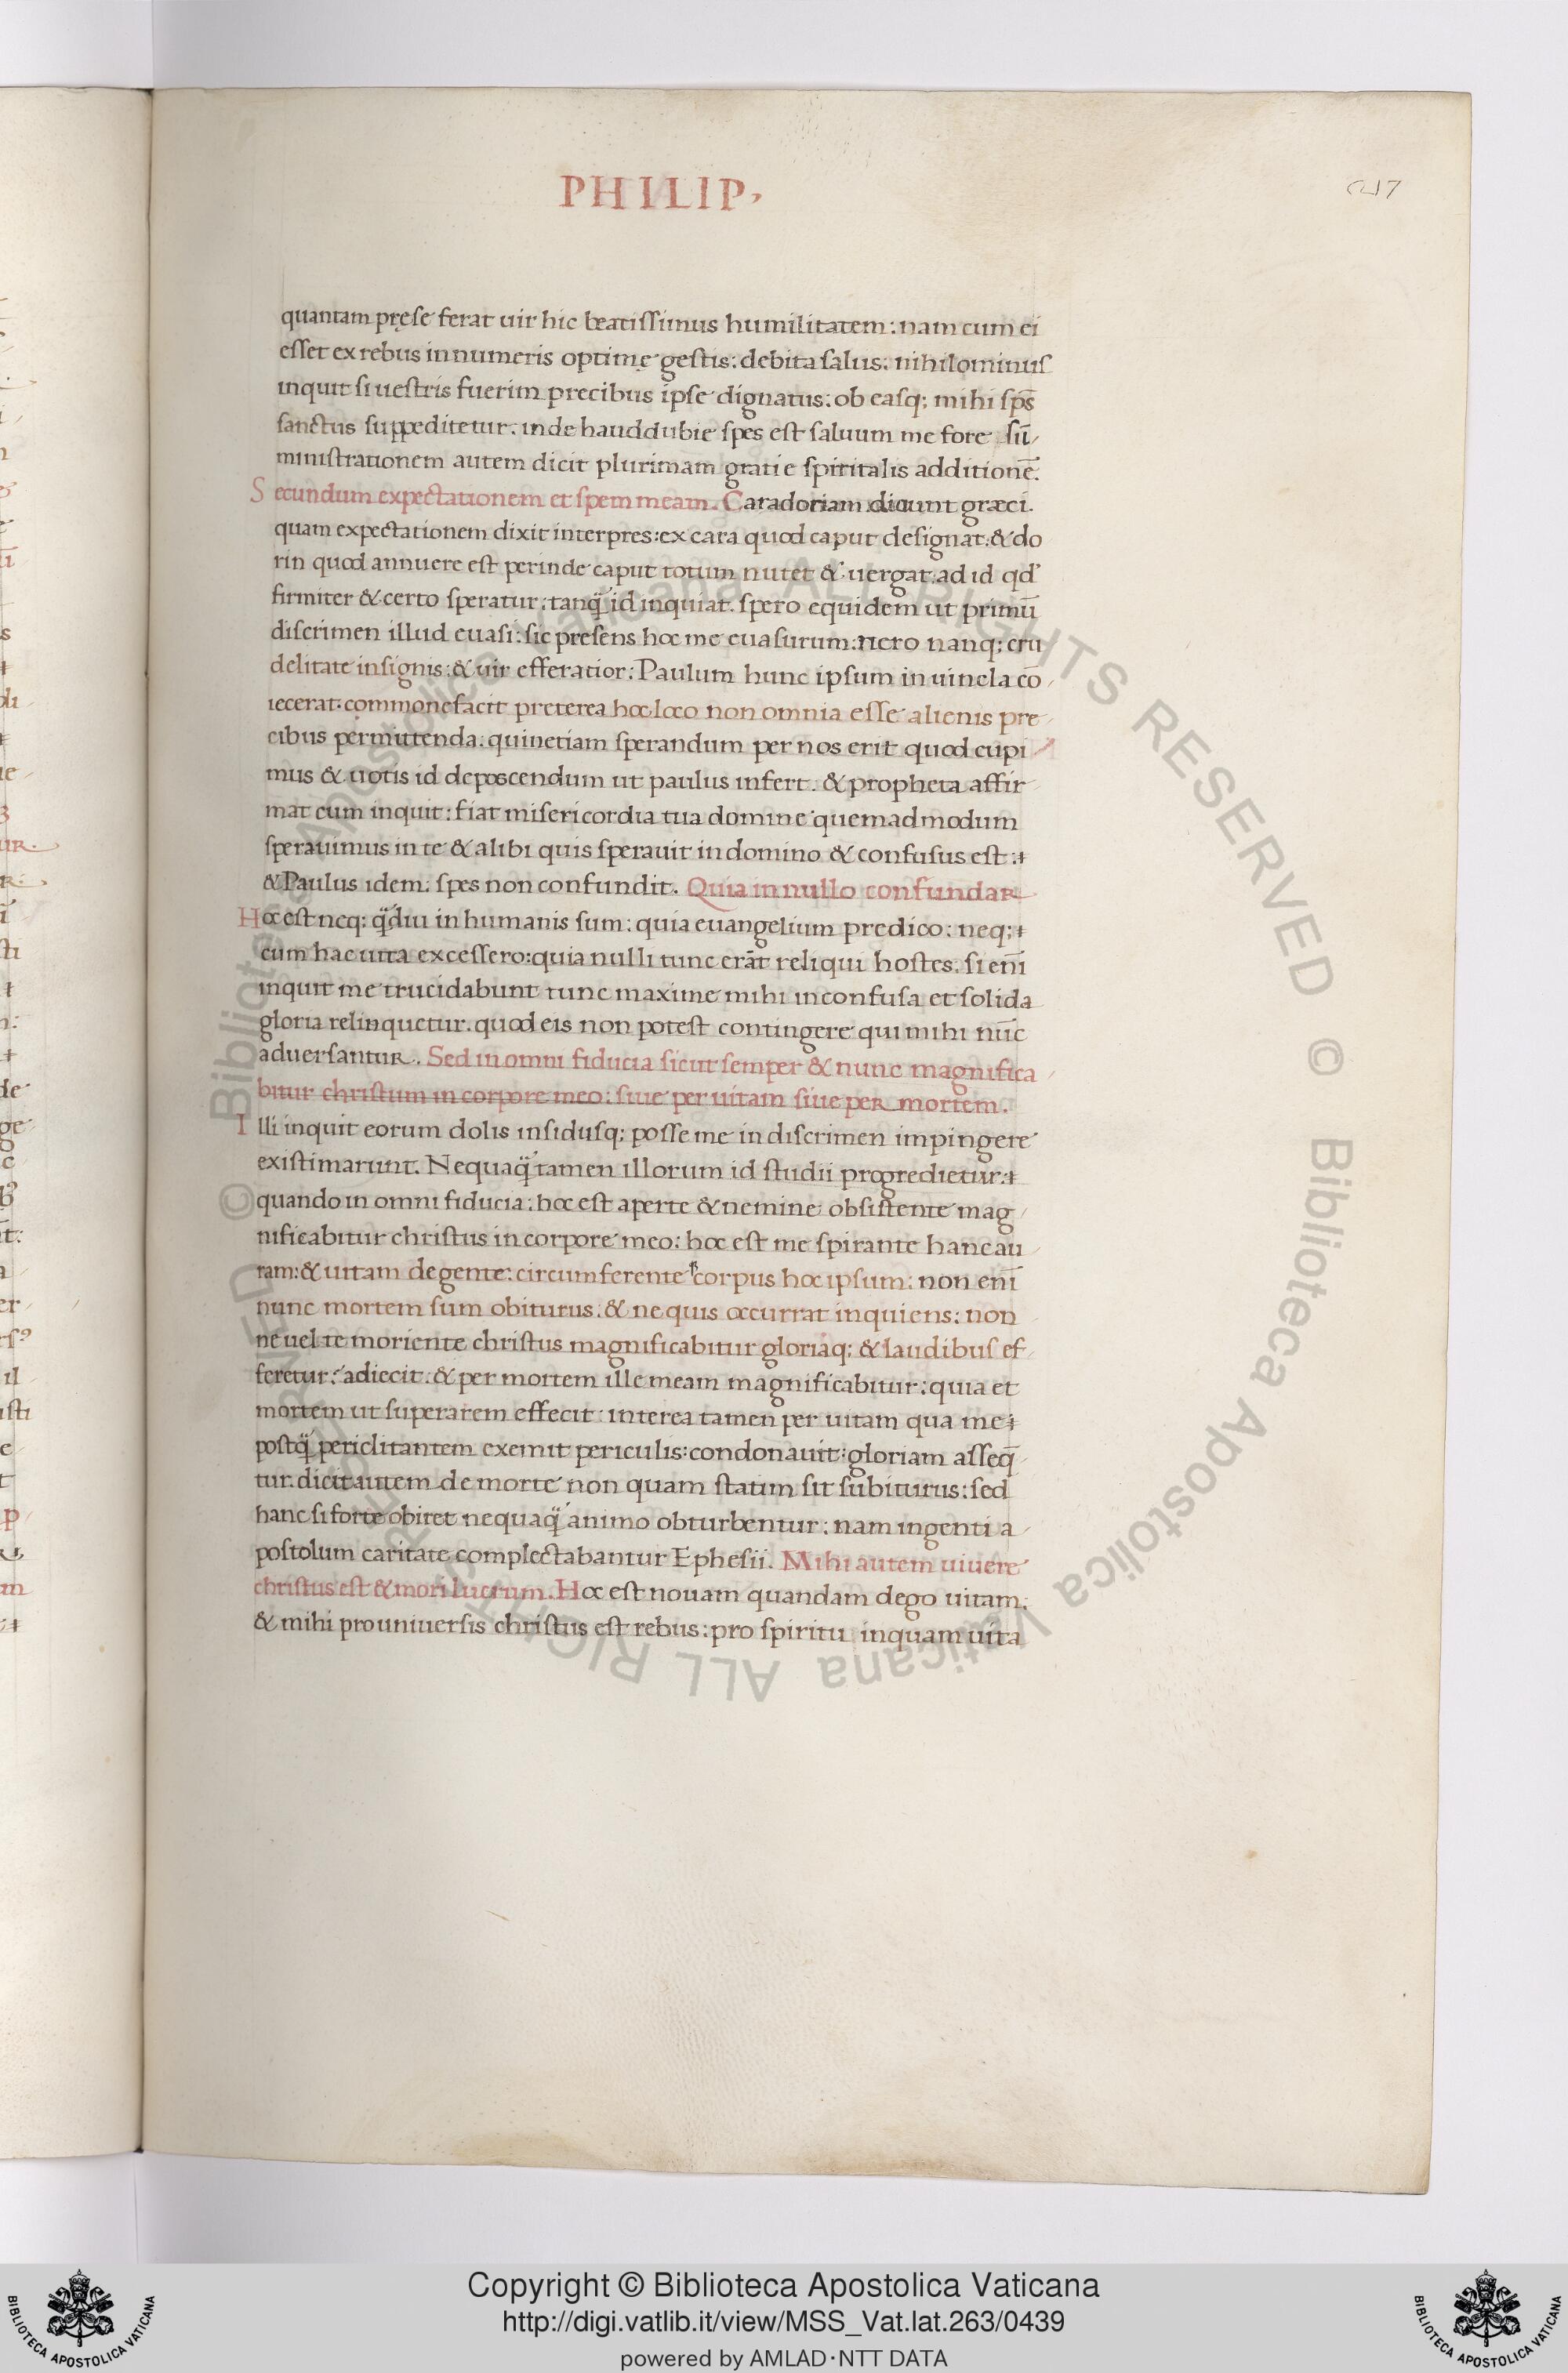 PHILIP,
217
quantam pręse ferat uir hic beatissimus humilitatem: nam cum ei
esset ex rebus innumeris optimę gestis: debita salus: nihilominus
inquit si uestris fuerim precibus ipse dignatus: ob easq; mihi sp̅s
sanctus suppeditetur: inde haud dubie spes est saluum me fore su̅
ministrationem autem dicit plurimam gratie spiritalis additione̅.
Secundum expectationem et spem meam. Caradoriam dicunt græci.
quam expectationem dixit interpres: ex cara quod caput designat: & do
rin quod annuere est perinde caput totum nutet & uergat: ad id qd'
firmiter & certo speratur: tanq̃ id inquiat. spero equidem ut primu̅
discrimen illud euasi: sic presens hoc me euasurum: nero nanq; cru
delitate insignis: & uir efferatior: Paulum hunc ipsum in uincla co̅
iecerat. commonefacit preterea hoc loco non omnia esse alienis pre
cibus permittenda: quinetiam sperandum per nos erit quod cupi
mus & uotis id deposcendum ut paulus infert. & propheta affir
mat cum inquit: fiat misericordia tua domine quemadmodum
sperauimus in te & alibi quis sperauit in domino & confusus est:
& Paulus idem: spes non confundit. Quia in nullo confundar
Hoc est neq: q̃diu in humanis sum: quia euangelium predico: neq;
cum hac uita excessero: quia nulli tunc era̅t reliqui hostes. si eni̅
inquit me trucidabunt tunc maxime mihi inconfusa et solida
gloria relinquetur. quod eis non potest contingere qui mihi nu̅c
aduersantur. Sed in omni fiducia sicut semper & nunc magnifica
bitur christum in corpore meo: siue per uitam siue per mortem.
Illi inquit eorum dolis insidiisq; posse me in discrimen impingere
existimarunt. Nequaq̃ tamen illorum id studii progredietur:
quando in omni fiducia: hoc est aperte & nemine obsistente mag
nificabitur christus in corpore meo: hoc est me spirante hanc au
ram: & uitam degente: circumferente corpus hoc ipsum: non eni̅
nunc mortem sum obiturus. & ne quis occurrat inquiens: non
ne uel te moriente christus magnificabitur gloriaq; & laudibus ef
feretur: adiecit. & per mortem ille meam magnificabitur: quia et
mortem ut superarem effecit: interea tamen per uitam qua me
postq̃ periclitantem exemit periculis: condonauit: gloriam asseq̅
tur. dicit autem de morte non quam statim sit subiturus: sed
hanc si forte obiret nequaq̃ animo obturbentur: nam ingenti a
postolum caritate complectabantur Ephesii. Mihi autem uiuere
christus est & mori lucrum. Hoc est nouam quandam dego uitam:
& mihi pro uniuersis christus est rebus: pro spiritu inquam uita
© Biblioteca Apostolica Vaticana ALL RIGHTS RESERVED © Biblioteca Apostolica Vaticana ALL RIGHTS RESERVED
Copyright © Biblioteca Apostolica Vaticana
http://digi.vatlib.it/view/MSS_Vat.lat.263/0439
powered by AMLAD·NTT DATA
BIBLIOTECA APOSTOLICA VATICANA
BIBLIOTECA APOSTOLICA VATICANA